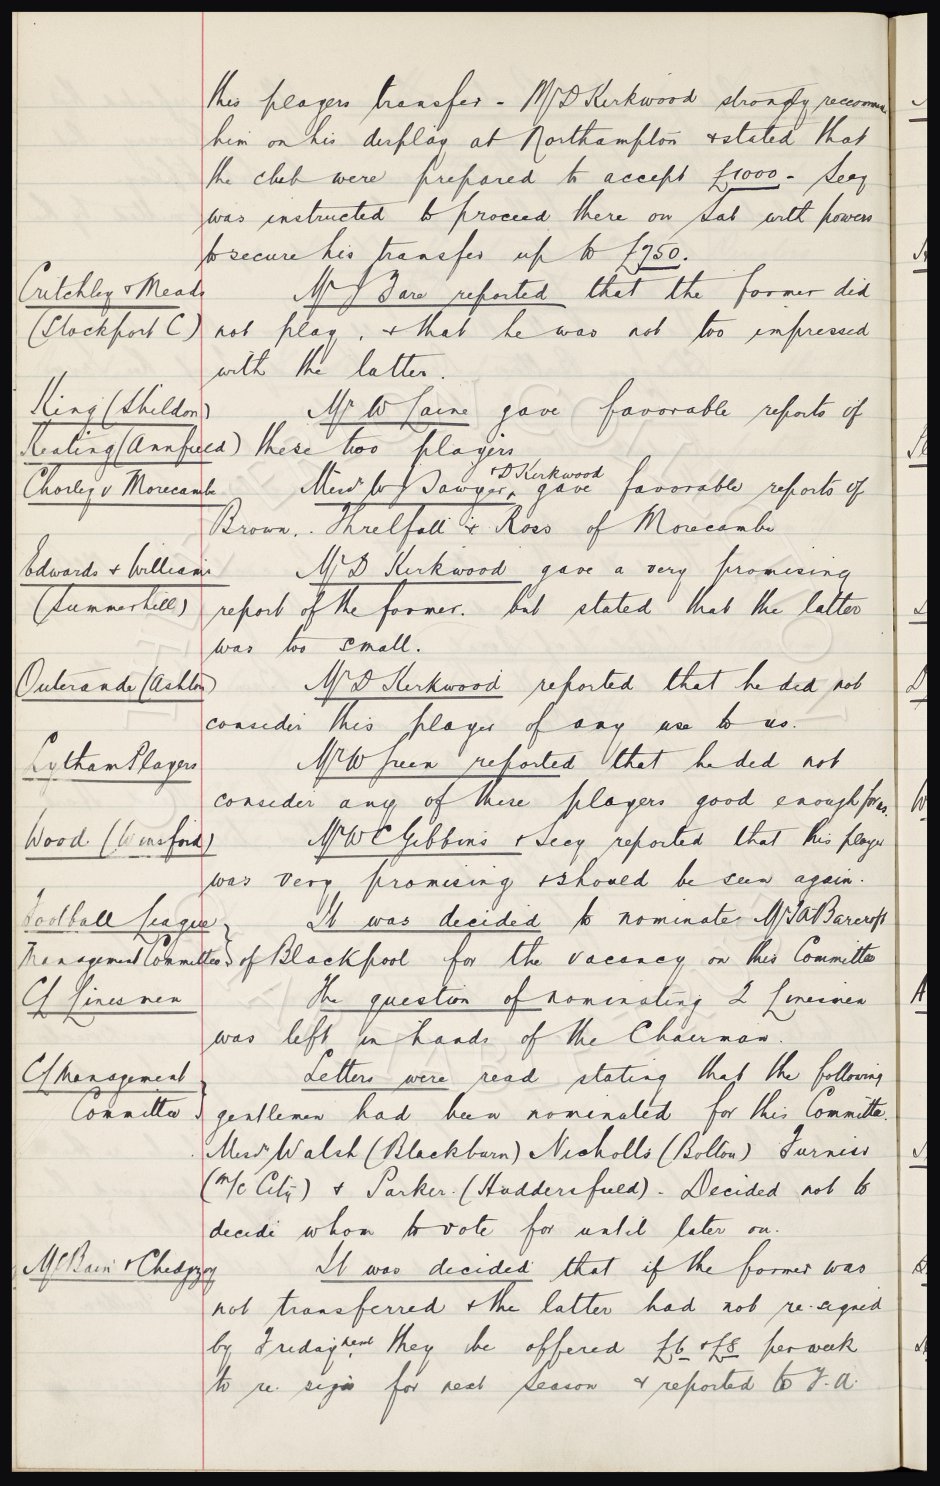 this players transfer - Mr D Kirkwood strongly reccomm
him on his display at Northampton & stated that
the club were prepared to accept £1000 - Secy
was instructed to proceed there on Sat with powers
to secure his transfer up to £750.
Critchley & Meads Mr J Fare reported that the former did
(Stockport C) not play, & that he was not too impressed
with the latter.
King (Shildon) Mr W Laine gave favorable reports of
Keating (Annfield) these two players
& D Kirkwood
Chorley v Morecambe Messrs W J Sawyer, gave favorable reports of
Brown, Threlfall & Ross of Morecambe
Edwards & Williams Mr D Kirkwood gave a very promising
(Summerhill) report of the former. but stated that the latter
was too small.
Outerande (Ashton) Mr D Kirkwood reported that he did not
consider this player of any use to us.
Lytham Players Mr W Green reported that he did not
consider any of these players good enough for us.
Wood (Winsford) Mr W C Gibbins & Secy reported that this player
was very promising & should be seen again.
Football League It was decided to nominate Mr T A Barcroft
Management Committee of Blackpool for the vacancy on this Committee
CL Linesmen The question of nominating 2 Linesmen
was left in hands of the Chairman.
CL Management Letters were read stating that the following
Committee gentlemen had been nominated for this Committee.
Messrs Walsh (Blackburn) Nicholls (Bolton) Furniss
(M/c City) & Parker. (Huddersfield). Decided not to
decide whom to vote for until later on.
McBain & Chedgzoy It was decided that if the former was
not transferred & the latter had not re-signed
by Friday next they be offered £6 & £8 per week
to re. sign for next season & reported to F.A.